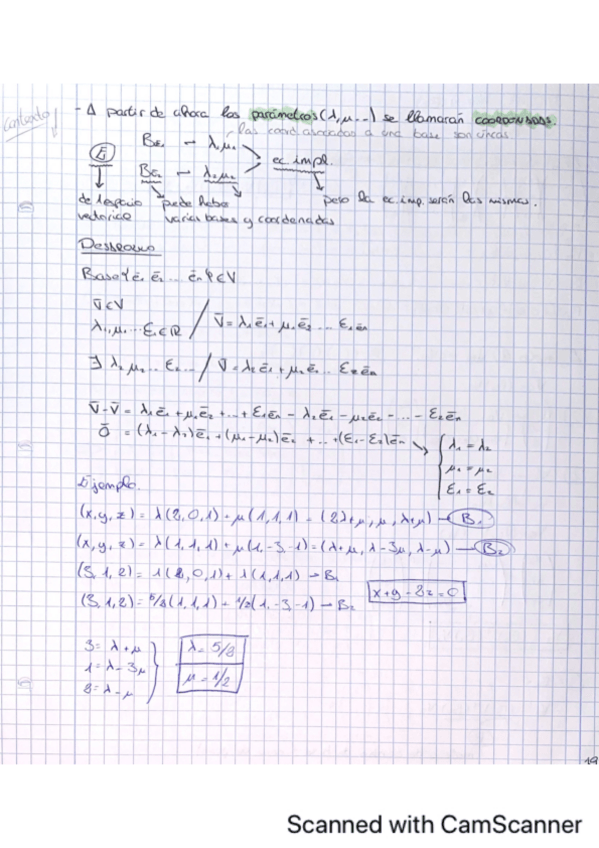 Contexto!
- A partir de ahora los parámetros (λ, μ...) se llamarán COORDENADAS.
las coord. asociadas a una base son únicas
E
B_E₁ — λ₁μ₁
B_E₂ — λ₂μ₂
ec impl.
de 1 espacio vectorial
puede haber varias bases y coordenadas
pero la ec. imp. serán las mismas.
DESARROLLO
Base {ē₁ ē₂ ... ēₙ} ∈ V
v̄ ∈ V
λ₁, μ₁ ... ε₁ ∈ ℝ / v̄ = λ₁ē₁ + μ₁ē₂ ... ε₁ēₙ
∃ λ₂ μ₂ .. ε₂ ... / v̄ = λ₂ē₁ + μ₂ē₂ ... ε₂ēₙ
v̄ - v̄ = λ₁ē₁ + μ₁ē₂ + ... + ε₁ēₙ - λ₂ē₁ - μ₂ē₂ - ... - ε₂ēₙ
ō = (λ₁-λ₂)ē₁ + (μ₁-μ₂)ē₂ + ... + (ε₁-ε₂)ēₙ
λ₁ = λ₂
μ₁ = μ₂
ε₁ = ε₂
Ejemplo.
(x,y,z) = λ(2,0,1) + μ(1,1,1) = (2λ+μ, μ, λ+μ) — B₁
(x,y,z) = λ(1,1,1) + μ(1,-3,-1) = (λ+μ, λ-3μ, λ-μ) — B₂
(3,1,2) = 1(2,0,1) + 1(1,1,1) → B₁
x+y-2z=0
(3,1,2) = 5/2(1,1,1) + 1/2(1,-3,-1) → B₂
3 = λ+μ
1 = λ-3μ
2 = λ-μ
λ = 5/2
μ = 1/2
19
Scanned with CamScanner